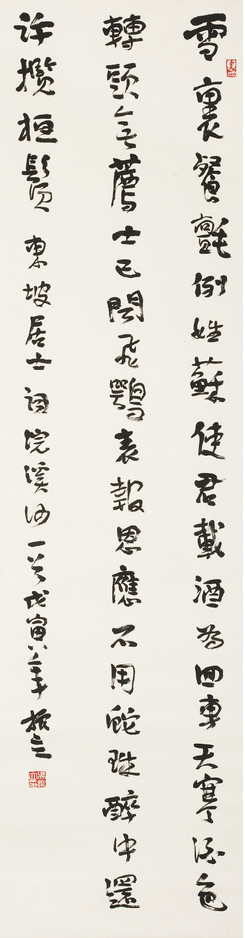 雪裏餐氈例姓蘇使君載酒為回車天寒酒色
轉頭無薦士已聞飛鶚表報恩應不用蛇珠醉中還
許攬桓鬚 東坡居士詞浣溪沙一首戊寅年